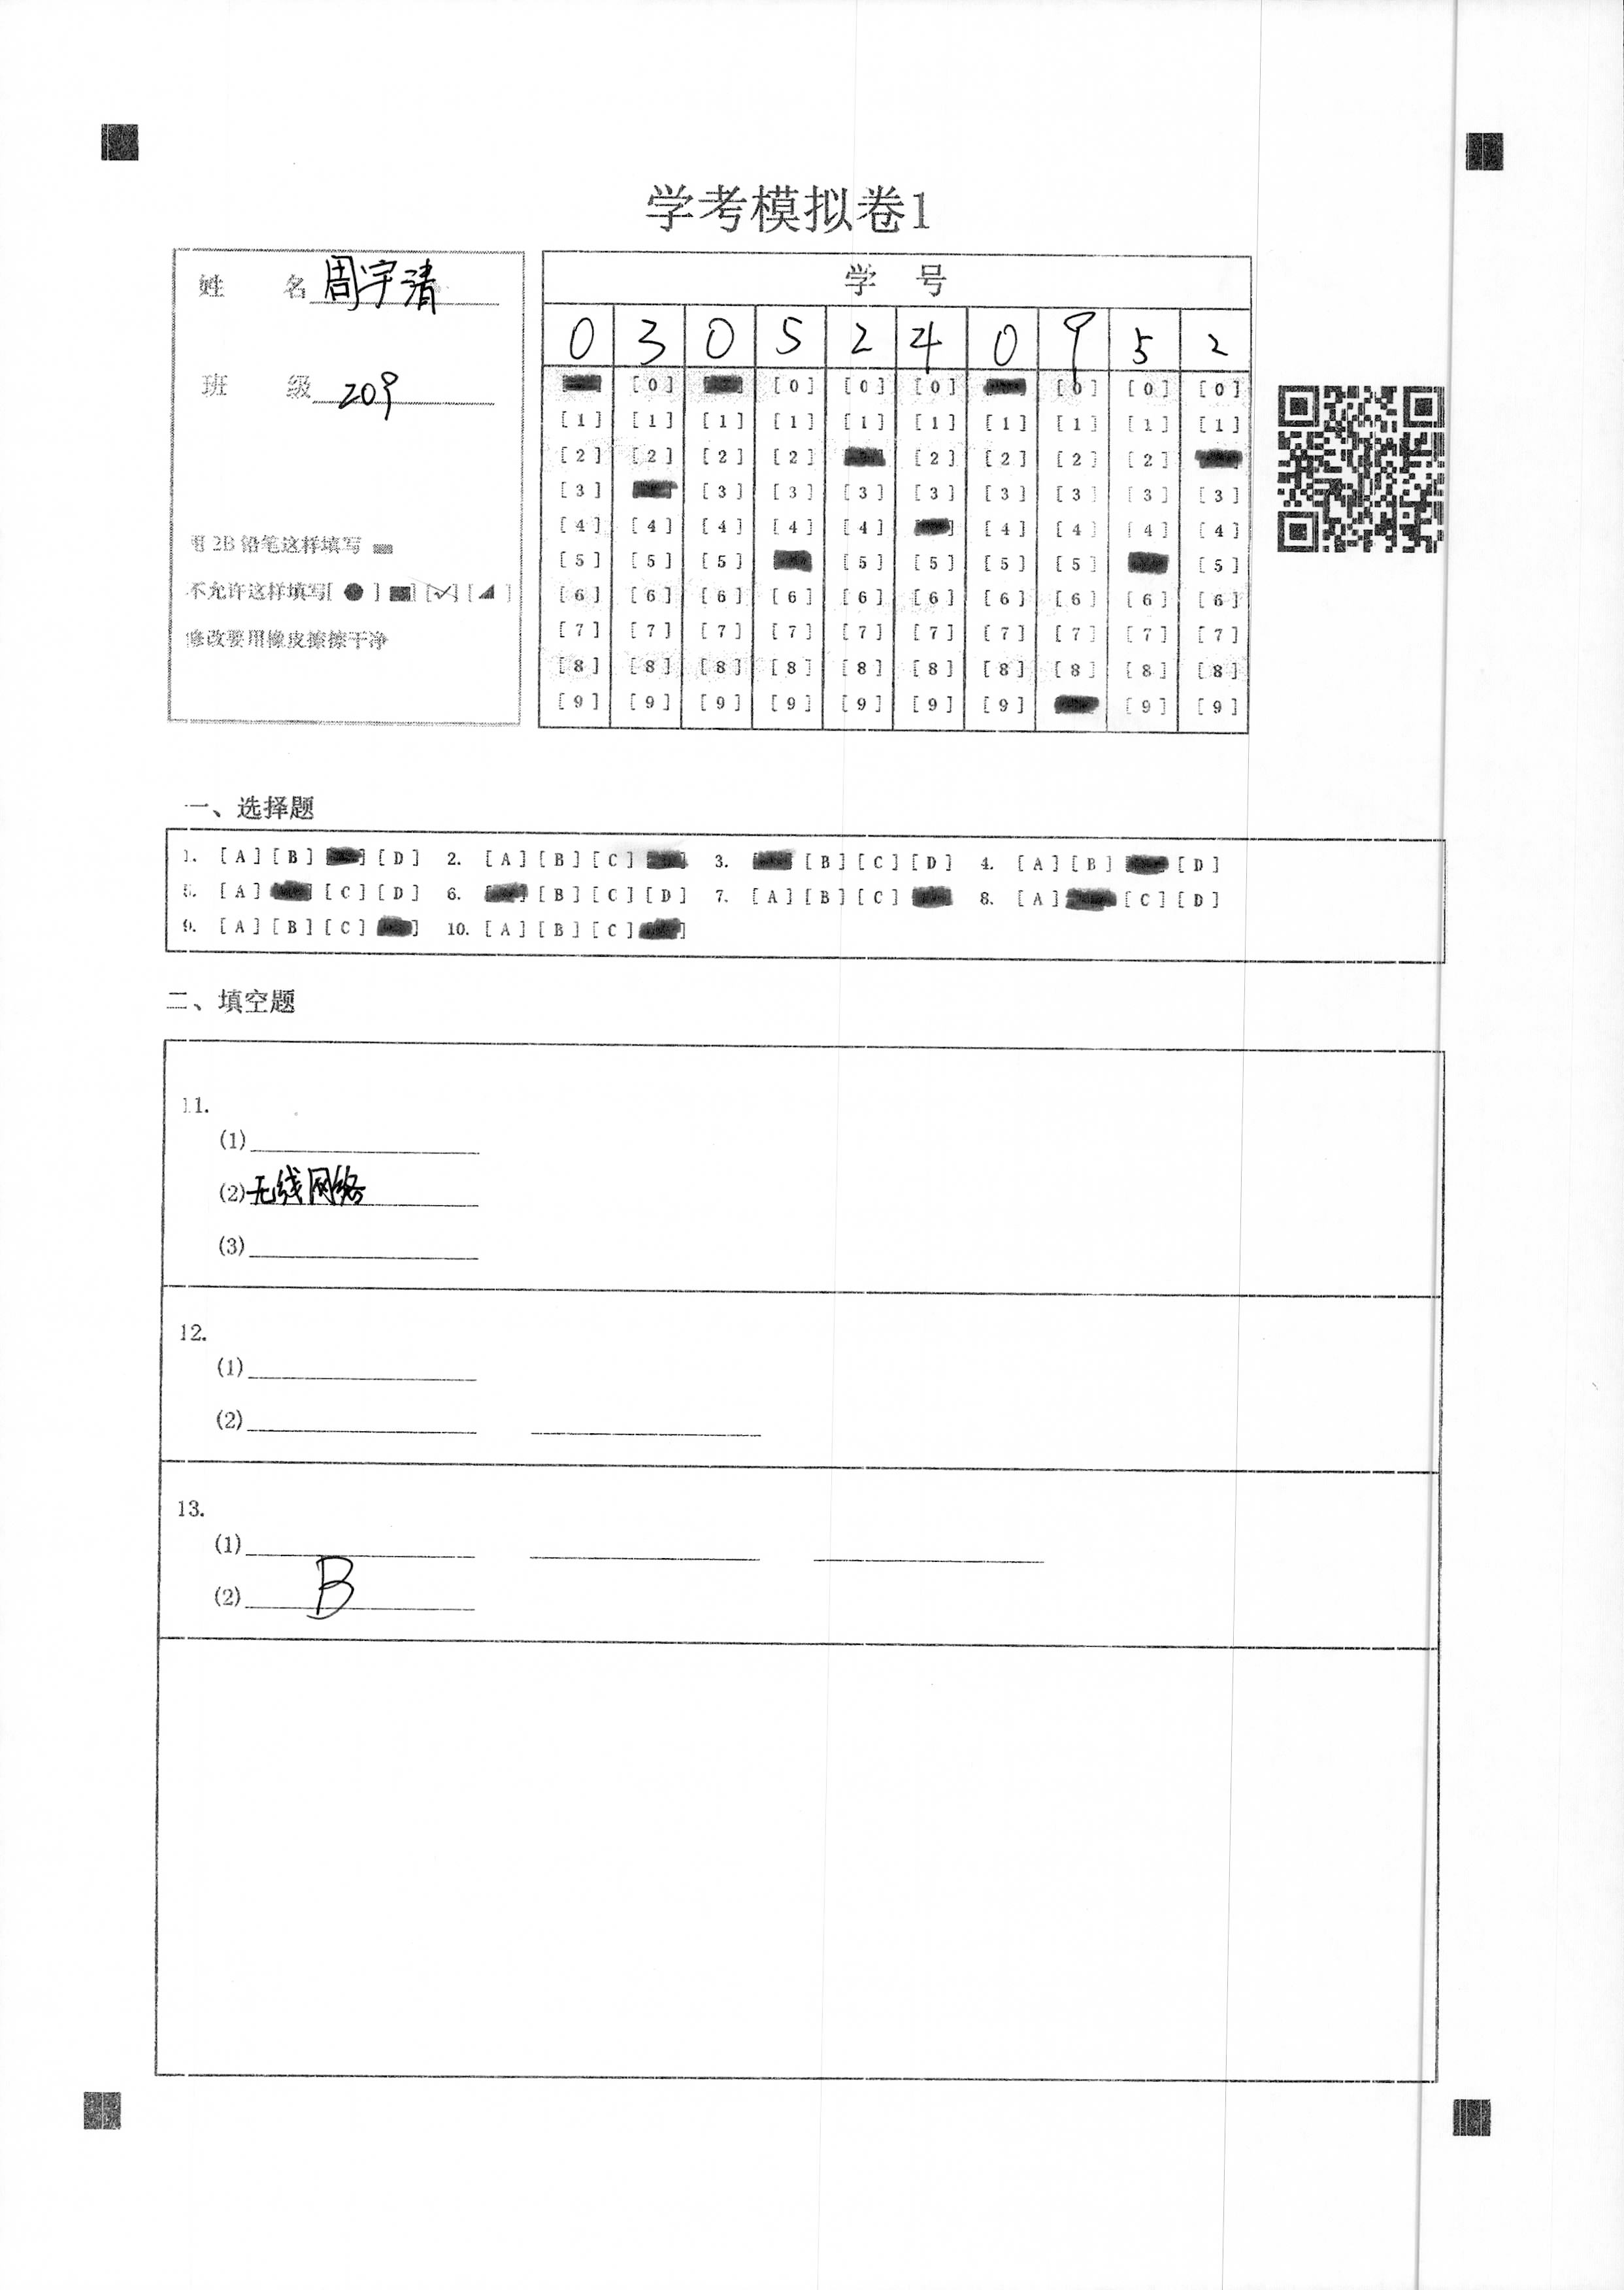 学考模拟卷1
姓 名 周宇清
班 级 209
用 2B 铅笔这样填写
不允许这样填写[ ● ] [ ] [✓] [ ◢ ]
修改要用橡皮擦擦干净
学 号
0 3 0 5 2 4 0 9 5 2
[0] [0] [0] [0] [0] [0] [0]
[1] [1] [1] [1] [1] [1] [1] [1] [1] [1]
[2] [2] [2] [2] [2] [2] [2] [2]
[3] [3] [3] [3] [3] [3] [3] [3] [3]
[4] [4] [4] [4] [4] [4] [4] [4] [4]
[5] [5] [5] [5] [5] [5] [5] [5]
[6] [6] [6] [6] [6] [6] [6] [6] [6] [6]
[7] [7] [7] [7] [7] [7] [7] [7] [7] [7]
[8] [8] [8] [8] [8] [8] [8] [8] [8] [8]
[9] [9] [9] [9] [9] [9] [9] [9] [9]
一、选择题
1. [A] [B] [D] 2. [A] [B] [C] 3. [B] [C] [D] 4. [A] [B] [D]
5. [A] [C] [D] 6. [B] [C] [D] 7. [A] [B] [C] 8. [A] [C] [D]
9. [A] [B] [C] 10. [A] [B] [C]
二、填空题
11.
(1)
(2) 无线网络
(3)
12.
(1)
(2)
13.
(1)
(2) B